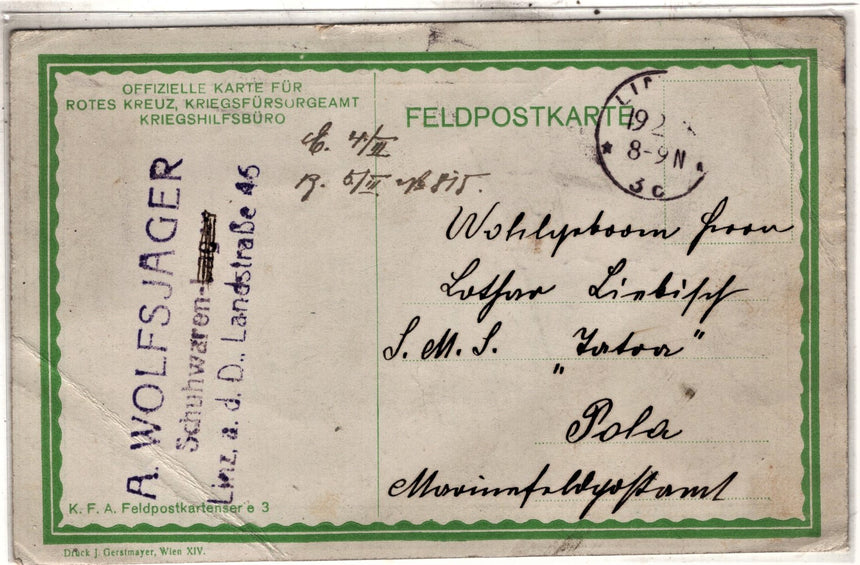 OFFIZIELLE KARTE FÜR
ROTES KREUZ, KRIEGSFÜRSORGEAMT
KRIEGSHILFSBÜRO
FELDPOSTKARTE
8-9 N
E. 4/II
B. 5/II № 815.
A. WOLFSJÄGER
Schuhwaren-
Linz, a. d. D., Landstraße 46
Wohlgeboren Herrn
Lothar Liebisch
S. M. S. „Tatra"
Pola
Marinefeldpostamt
K. F. A. Feldpostkartenser e 3
Druck J. Gerstmayer, Wien XIV.